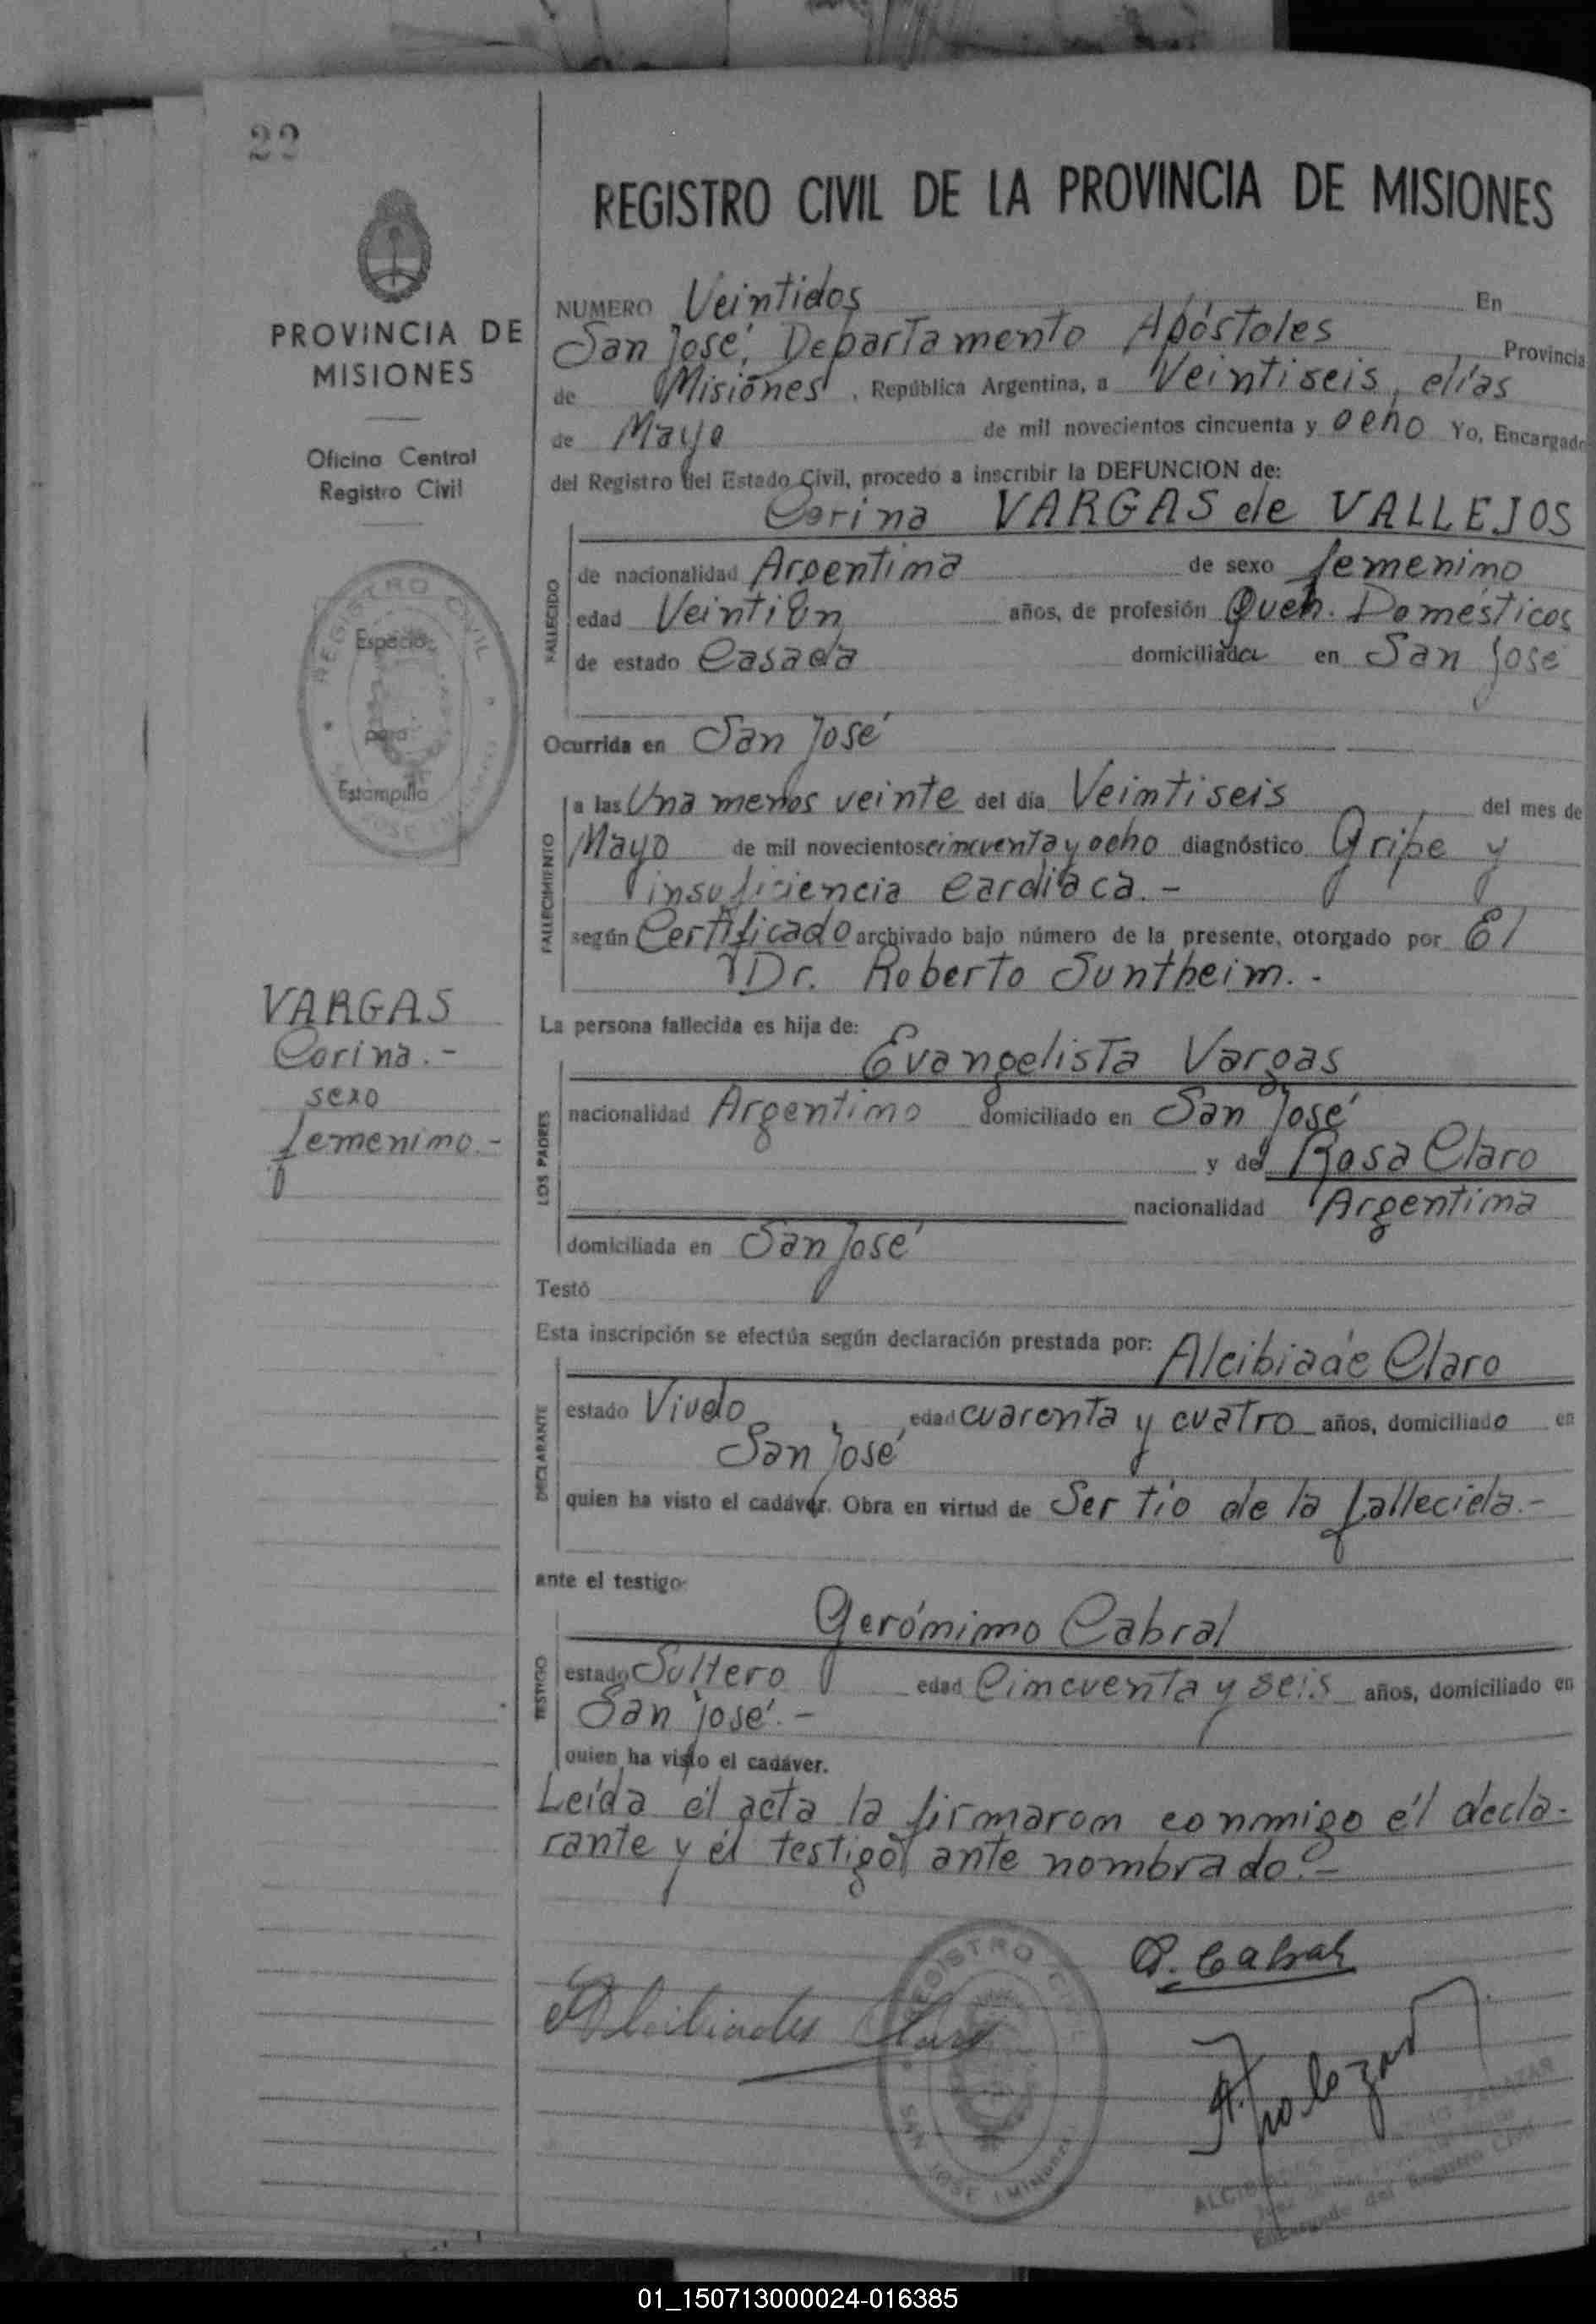 22
PROVINCIA DE
MISIONES
Oficina Central
Registro Civil
REGISTRO CIVIL
Espacio
para
Estampilla
VARGAS
Corina.-
sexo
femenimo.-
REGISTRO CIVIL DE LA PROVINCIA DE MISIONES
NUMERO Veintidos En
San José, Departamento Apóstoles Provincia
de Misiones, República Argentina, a Veintiseis, días
de Mayo de mil novecientos cincuenta y ocho Yo, Encargado
del Registro del Estado Civil, procedo a inscribir la DEFUNCION de:
Corina VARGAS de VALLEJOS
FALLECIDO
de nacionalidad Argentima de sexo femenimo
edad Veintiún años, de profesión Queh. Domésticos
de estado Casada domiciliada en San José
Ocurrida en San José
FALLECIMIENTO
a las Una menos veinte del día Veimtiseis del mes de
Mayo de mil novecientos cimcuenta y ocho diagnóstico Gripe y
insuficiencia cardíaca.-
según Certificado archivado bajo número de la presente, otorgado por El
Dr. Roberto Suntheim.-
La persona fallecida es hija de:
Evangelista Vargas
LOS PADRES
nacionalidad Argentimo domiciliado en San José
y de Rosa Claro
nacionalidad Argentima
domiciliada en San José
Testó
Esta inscripción se efectúa según declaración prestada por: Alcibiade Claro
DECLARANTE
estado Viudo edad cuarenta y cuatro años, domiciliado en
San José
quien ha visto el cadáver. Obra en virtud de Ser tío de la fallecida.-
ante el testigo:
Gerónimo Cabral
TESTIGO
estado Soltero edad Cimcuenta y seis años, domiciliado en
San José.-
quien ha visto el cadáver.
Leída el acta la firmarom conmigo él decla-
rante y él testigo ante nombrado.-
G. Cabral
Alcibiades Claro
REGISTRO CIVIL
SAN JOSE (Misiones)
ALCIBIADES ZALAZAR
Encargado del Registro Civil
01_150713000024-016385